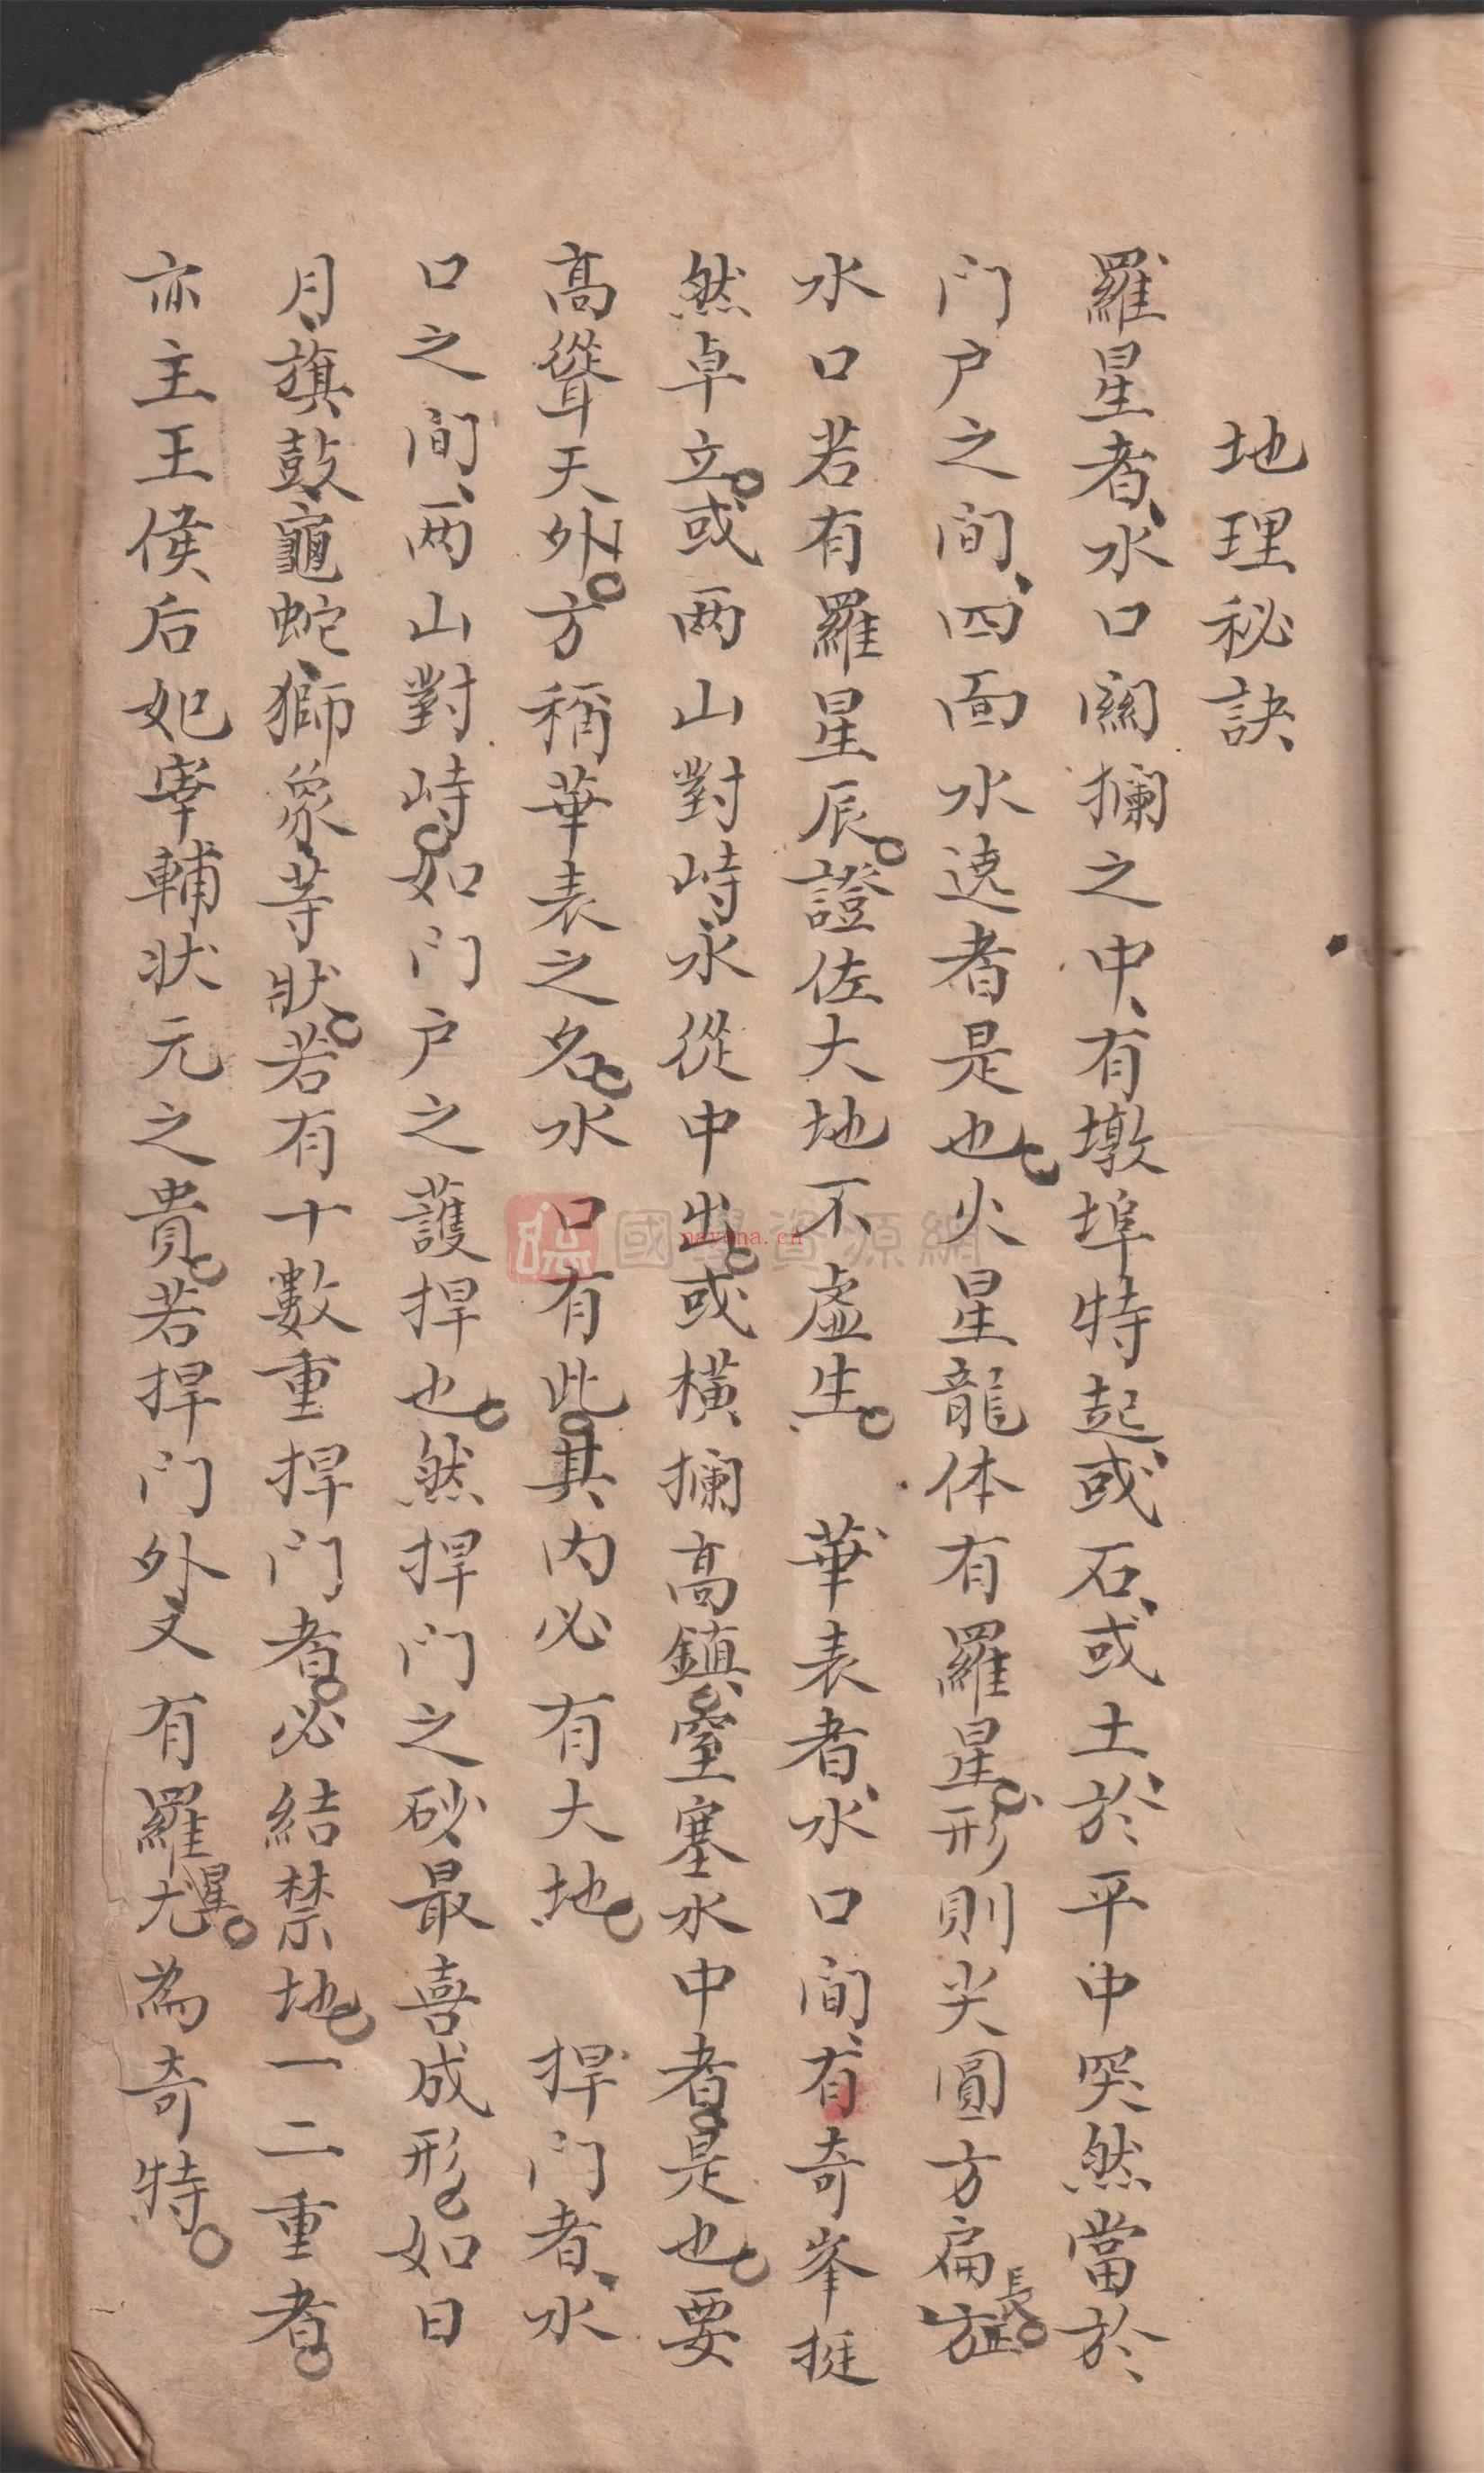 地理秘訣
羅星者、水口関攔之中、有墩埠特起、或石、或土、於平中突然當於
門户之间、四面水遶者是也。火星龍体有羅星。形則尖圓方扁長。
水口若有羅星辰。證佐大地不虛生。華表者、水口间、有奇峯挺
然卓立。或两山對峙、水從中出。或横攔高鎮。窒塞水中者。是也。要
高聳天外。方稱華表之名。水口有此。其内必有大地。捍门者、水
口之间、两山對峙。如门户之護捍也。然捍门之砂、最喜成形。如日
月、旗鼓、龜蛇、獅象、等狀。若有十數重捍门者。必結禁地。一二重者。
亦主王侯后妃宰輔状元之貴。若捍门外又有羅星。尤為奇特。
國學資源網
nayona.cn